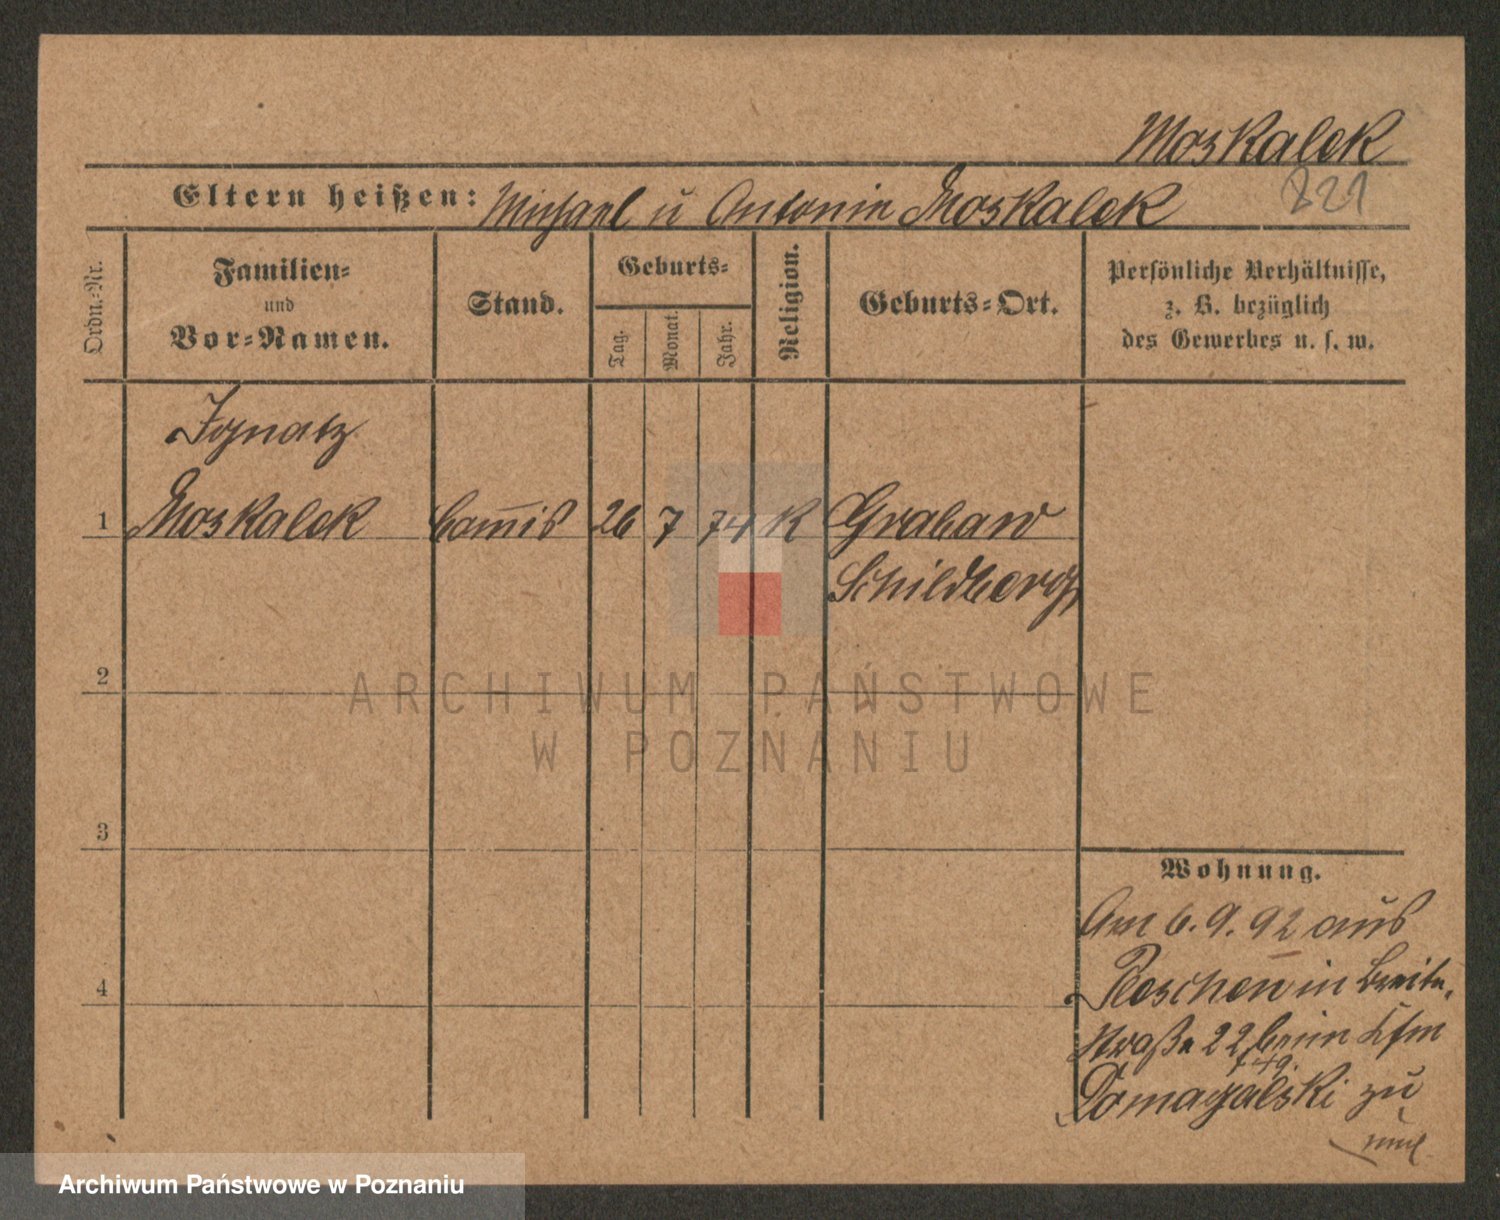 Moskalek
221
Eltern heißen: Michael u Antonie Moskalek
Ordn.-Nr.
Familien-
und
Vor-Namen.
Stand.
Geburts-
Tag.
Monat.
Jahr.
Religion.
Geburts-Ort.
Persönliche Verhältnisse,
z. B. bezüglich
des Gewerbes u. s. w.
Ignatz
1 Moskalek Com̄is 26 7 74 K Grabow
Schildberg
2
3
4
Wohnung.
Am 6. 9. 92 aus
Pleschen in Breite-
Straße 22 beim Kfm
Domagalski zu
ARCHIWUM PAŃSTWOWE
W POZNANIU
Archiwum Państwowe w Poznaniu